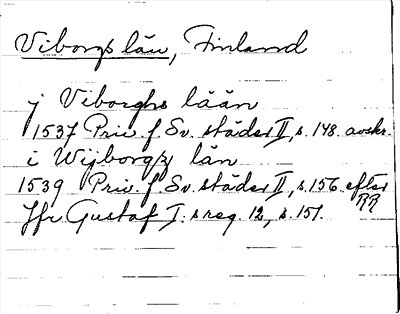 Viborgs län, Finland
j Viborghs lään
1537 Priv. f. Sv. städer II, s. 148. avskr.
i Wijborgz län
1539 Priv. f. Sv. städer II, s. 156. efter RR
Jfr Gustaf I:s reg. 12, s. 151.